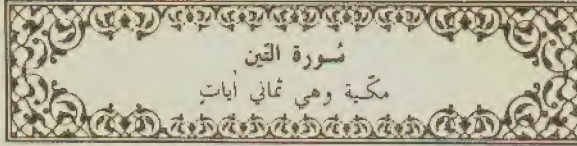 سورة التين
مكّية وهي ثماني أيات